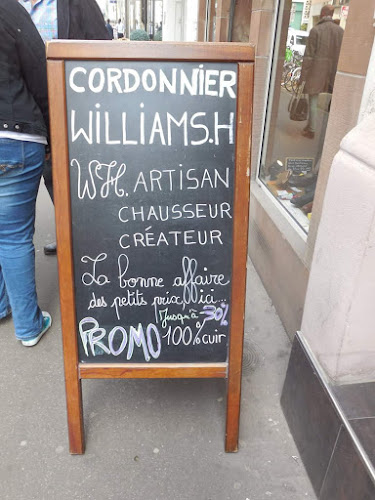 CORDONNIER
WILLIAMS.H
WH. ARTISAN
CHAUSSEUR
CRÉATEUR
La bonne affaire
des petits prix, ici...
Jusqu'à -30%
PROMO 100% cuir